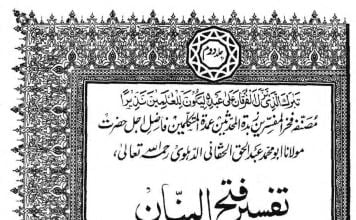 جلد دوم
تبارك الذي نزل الفرقان على عبده ليكون للعالمين نذيرا
مصنفہ فخر المفسرین زبدۃ المحدثین عمدۃ المتکلمین فاضل اجل حضرت
مولانا ابو محمد عبد الحق الحقانی الدہلوی رحمۃ اللہ تعالیٰ،
تفسیر فتح المنان